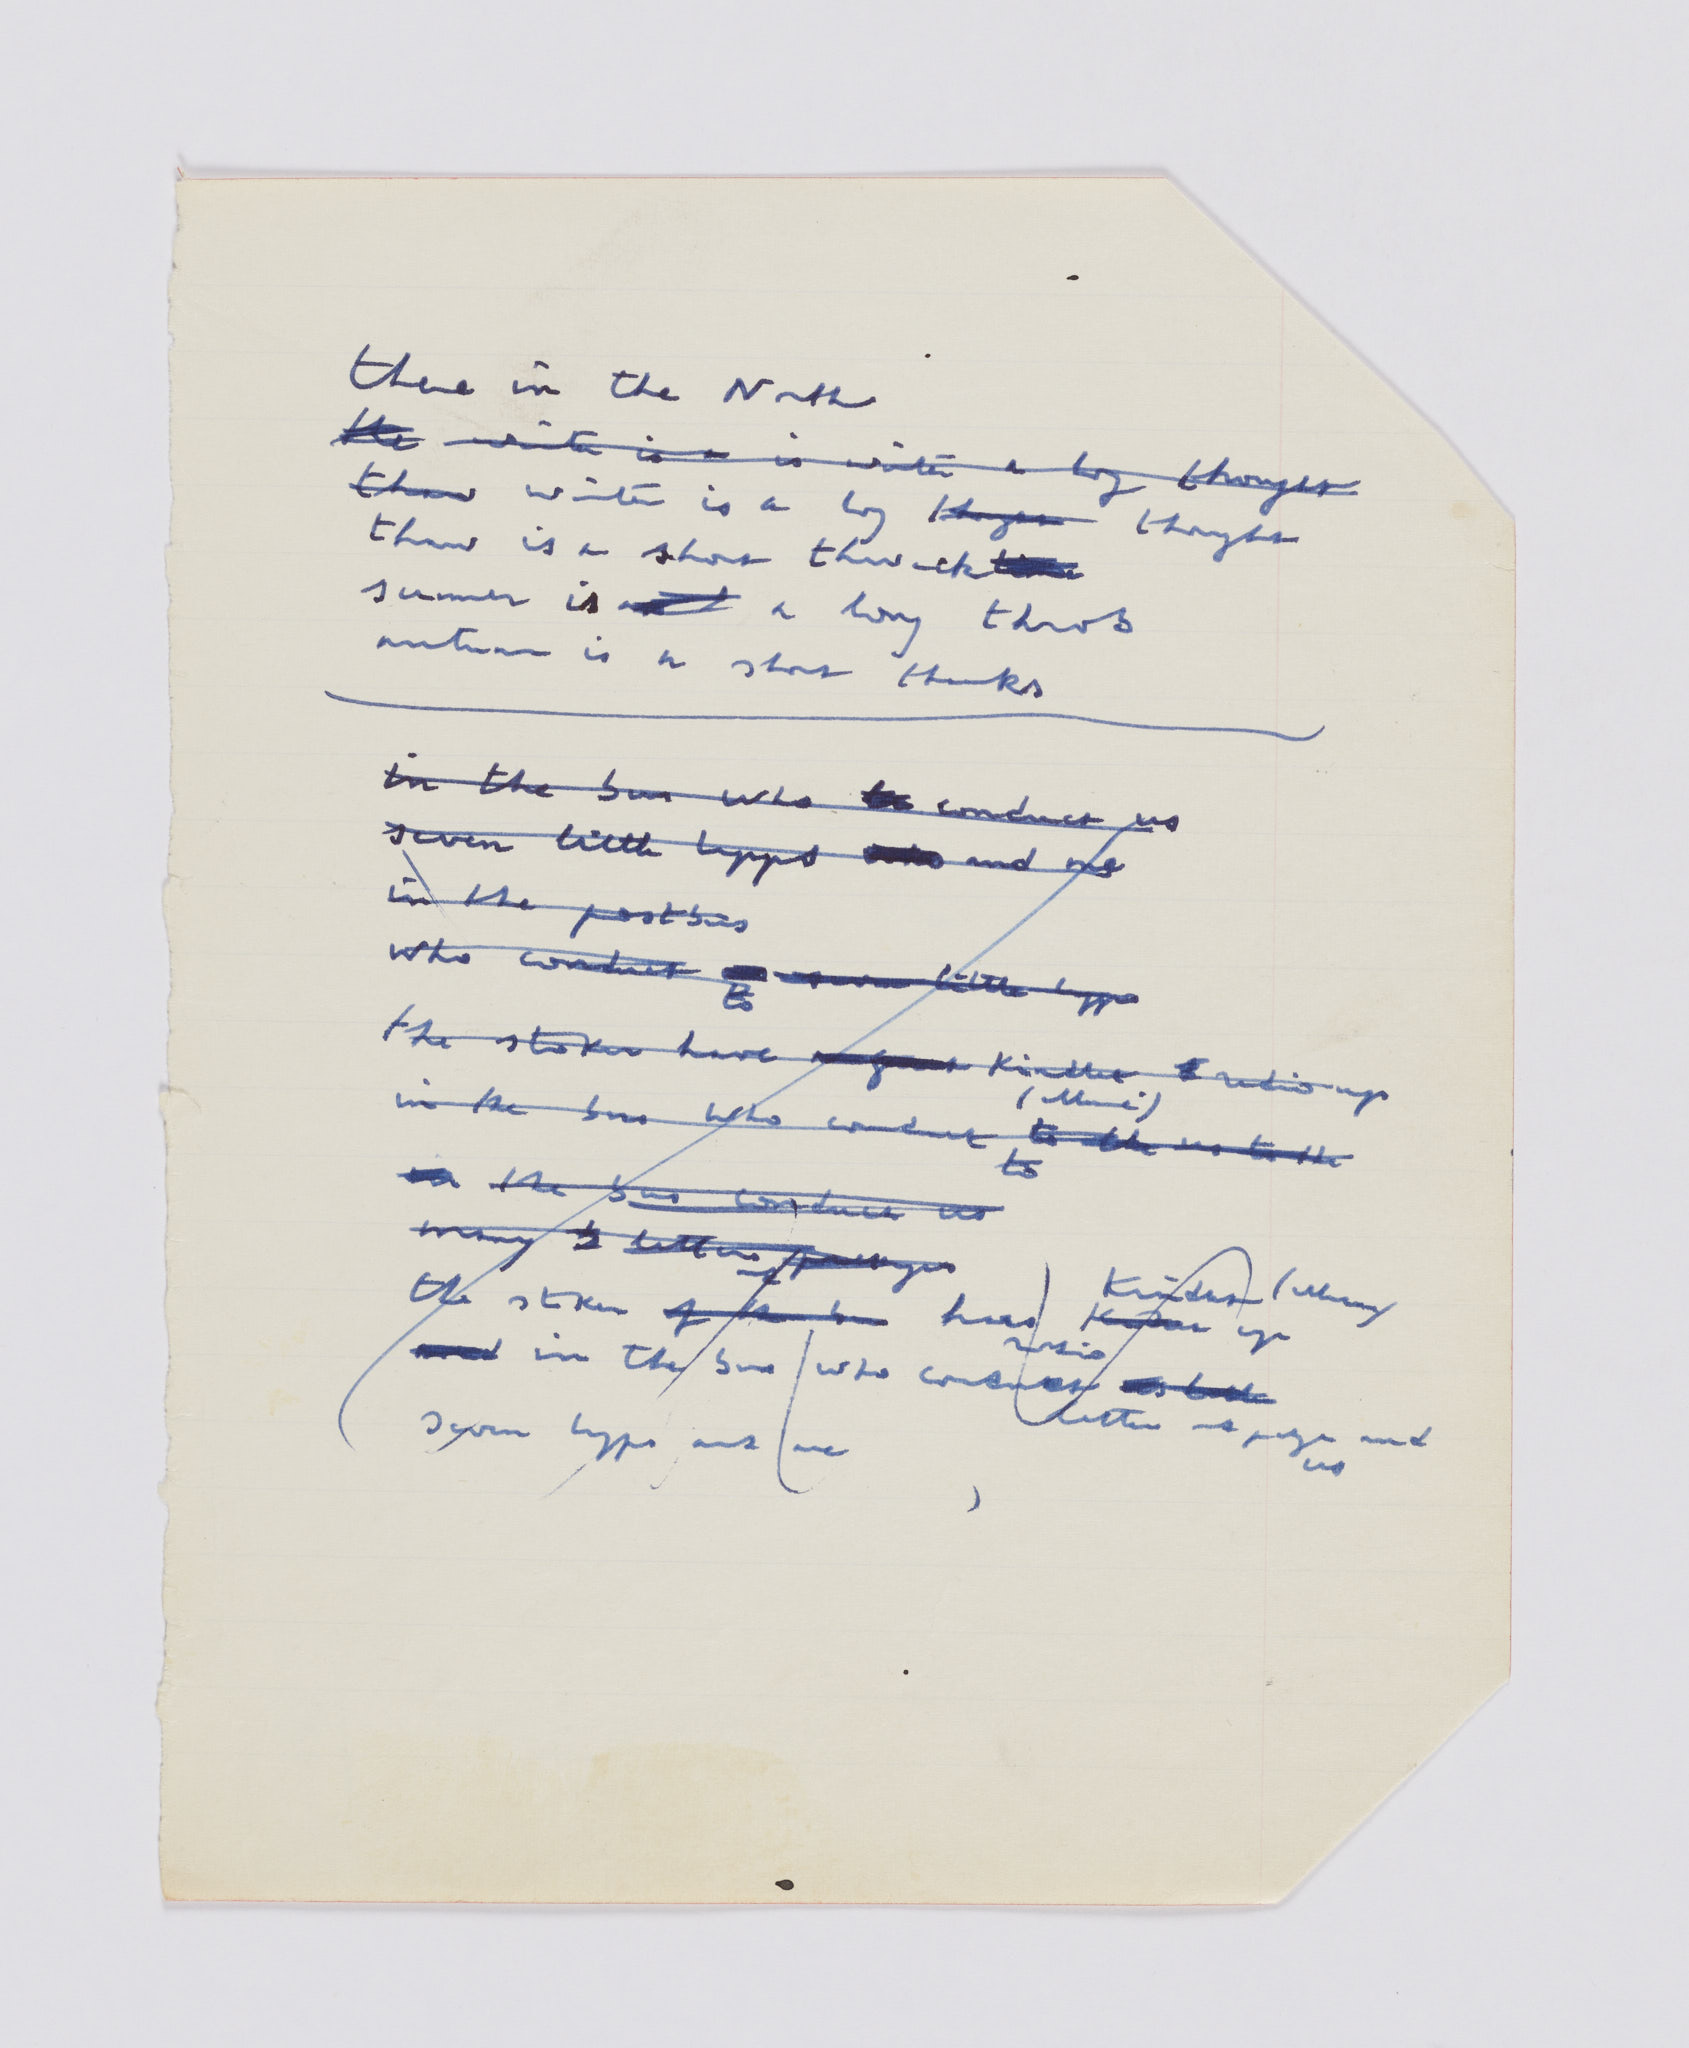 there in the North
the winter is a is winter a long thought
thaw winter is a long thought
thaw is a short thwack
summer is a long throb
autumn is a short thanks
in the bus who conduct us
seven little lapps and me
in the postbus
who conduct seven little lapps
to
the stoker have kindled radio up
in the bus who conduct to the us to the
to
the bus conduct us
many letters
the stoker of the bus have up
radio
in the bus who conduct
letter and
us
seven lapps and me